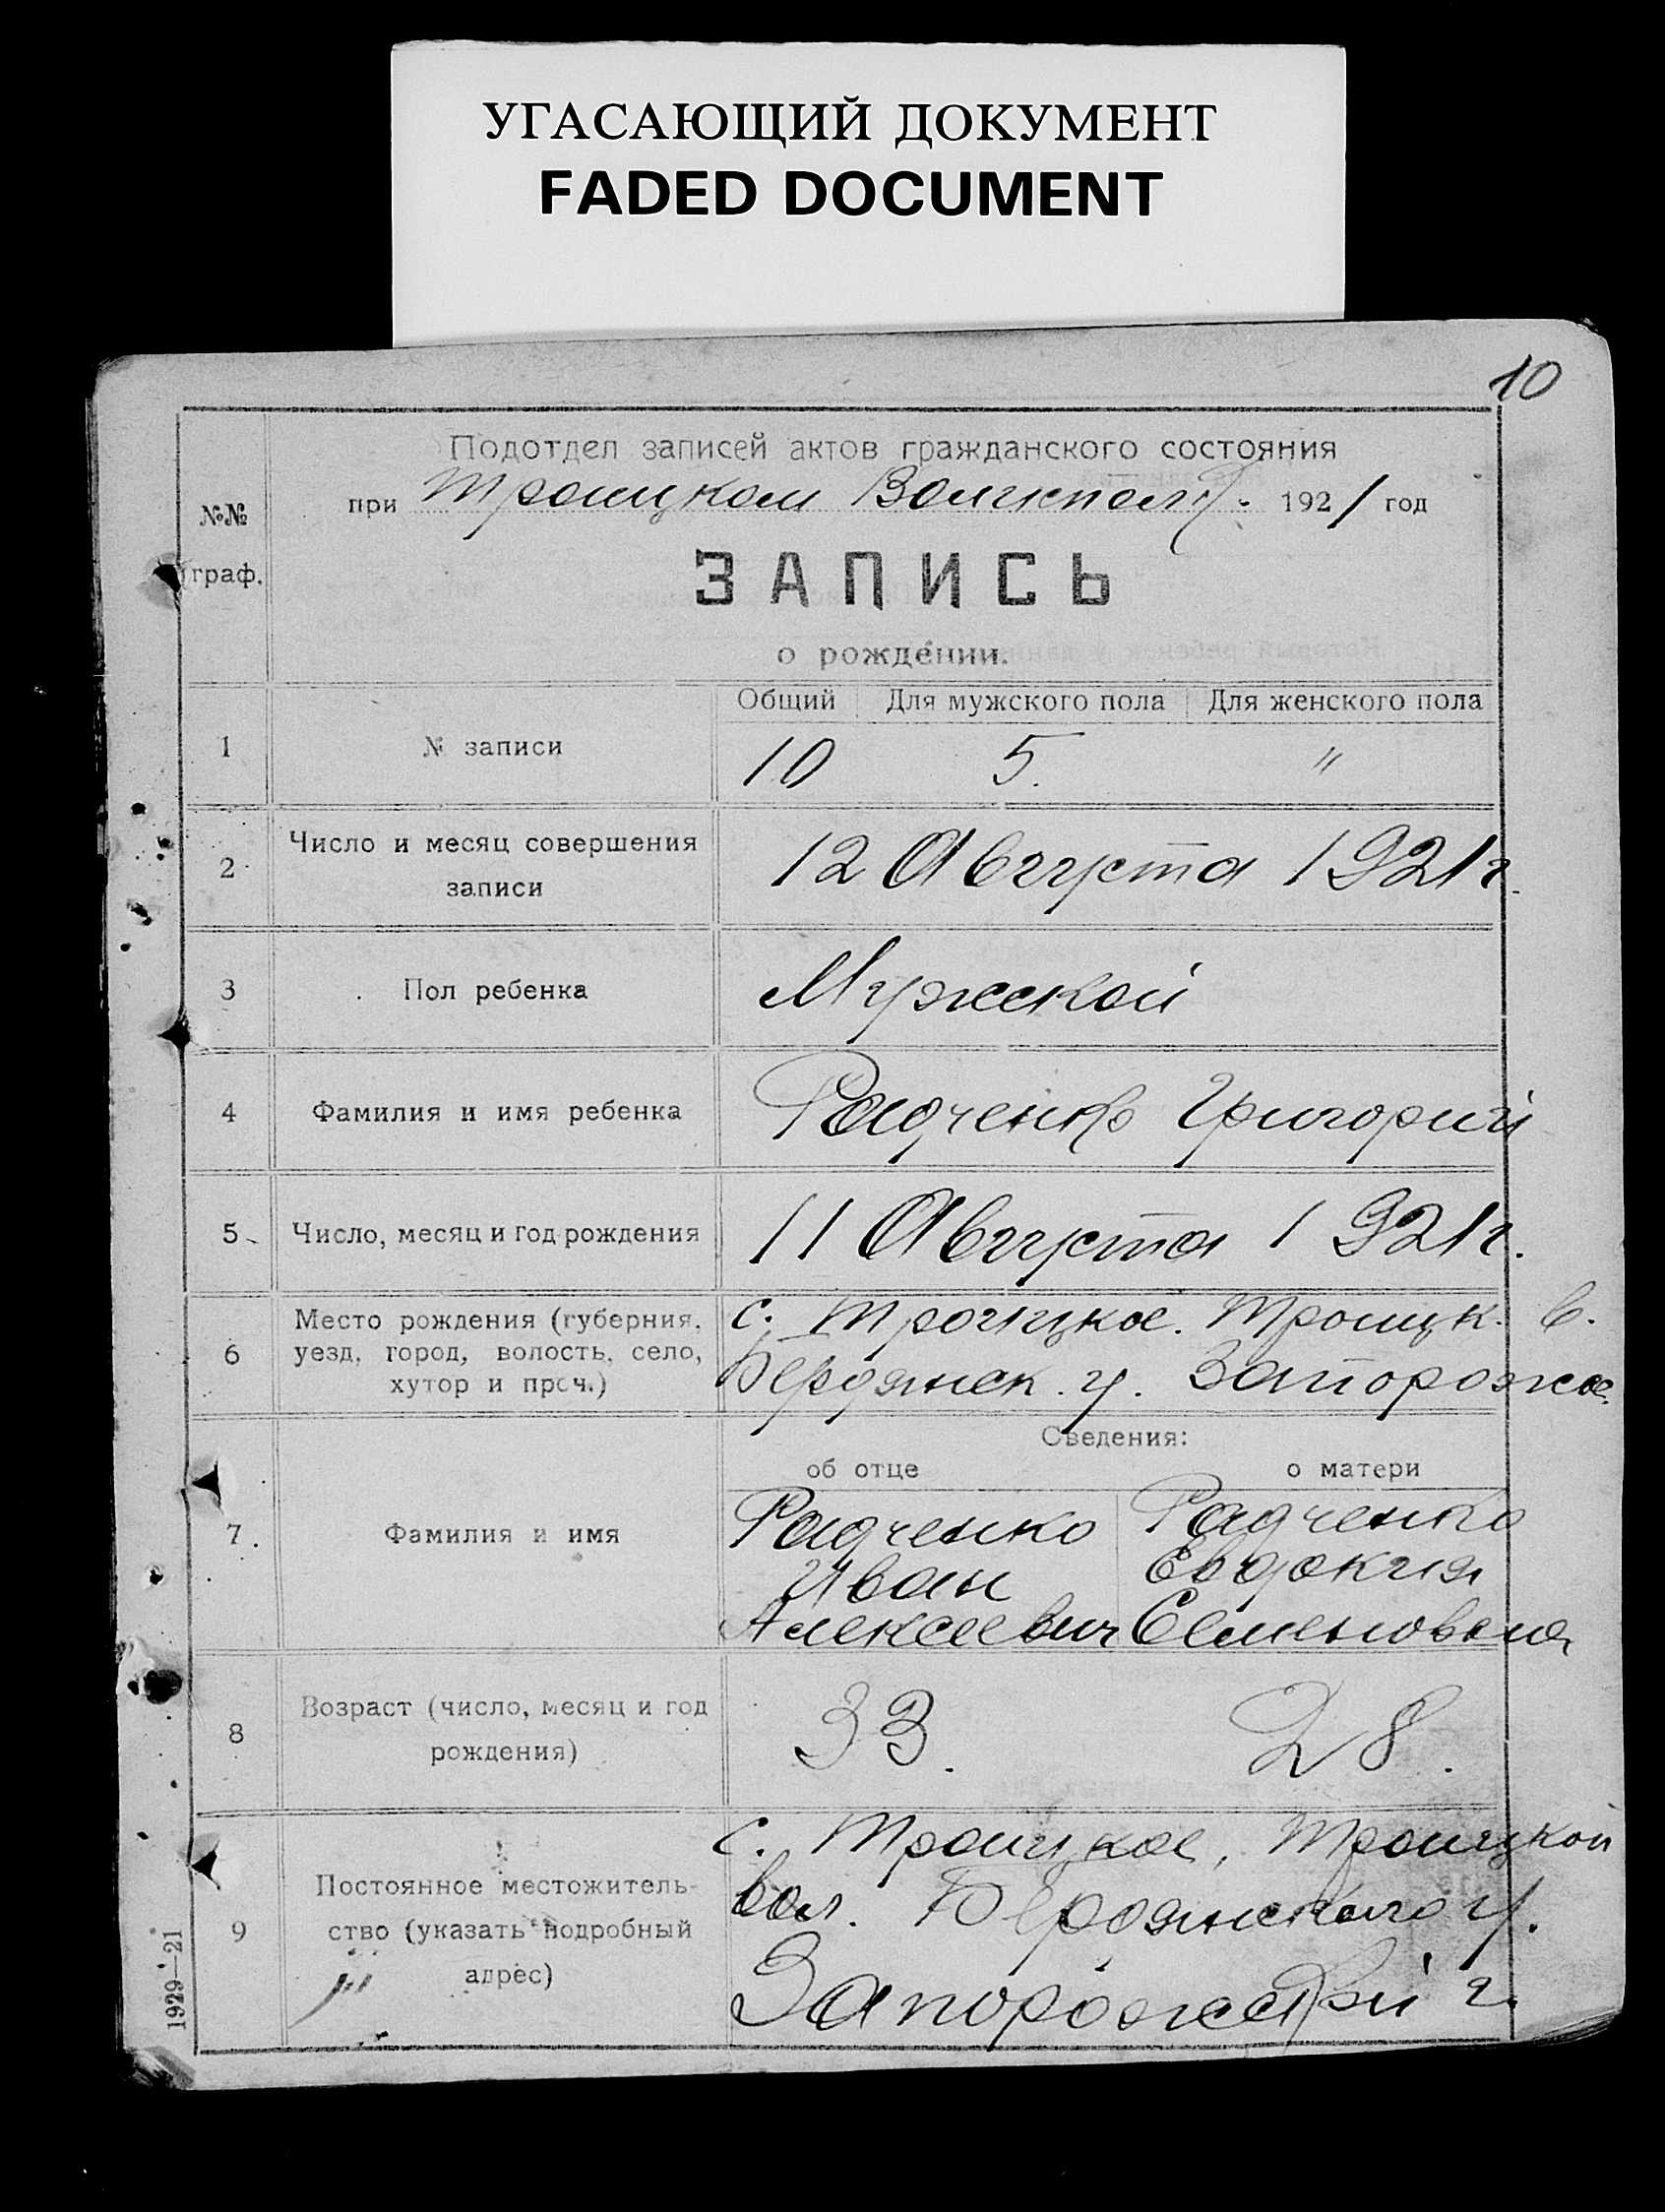 УГАСАЮЩИЙ ДОКУМЕНТ
FADED DOCUMENT
10
Подотдел записей актов гражданского состояния
при Троицком 1921 год
№№
граф.
ЗАПИСЬ
о рождении.
Общий Для мужского пола Для женского пола
1 № записи 10 5. "
2 Число и месяц совершения
записи
12 Августа 1921 г.
3 Пол ребенка Мужской
4 Фамилия и имя ребенка Радченко Григорий
5 Число, месяц и год рождения 11 Августа 1921 г.
6 Место рождения (губерния,
уезд, город, волость, село,
хутор и проч.)
с. Троицкое. Троицк. в.
Бердянск. у. Запорожс.
Сведения:
об отце о матери
7. Фамилия и имя
Радченко
Иван
Алексеевич
Радченко
Евдокия
Семеновена
8 Возраст (число, месяц и год
рождения)
33. 28.
9 Постоянное местожитель-
ство (указать подробный
адрес)
с. Троицкое, Троицкой
вол. Бердянского у.
Запорожской г.
1929—21